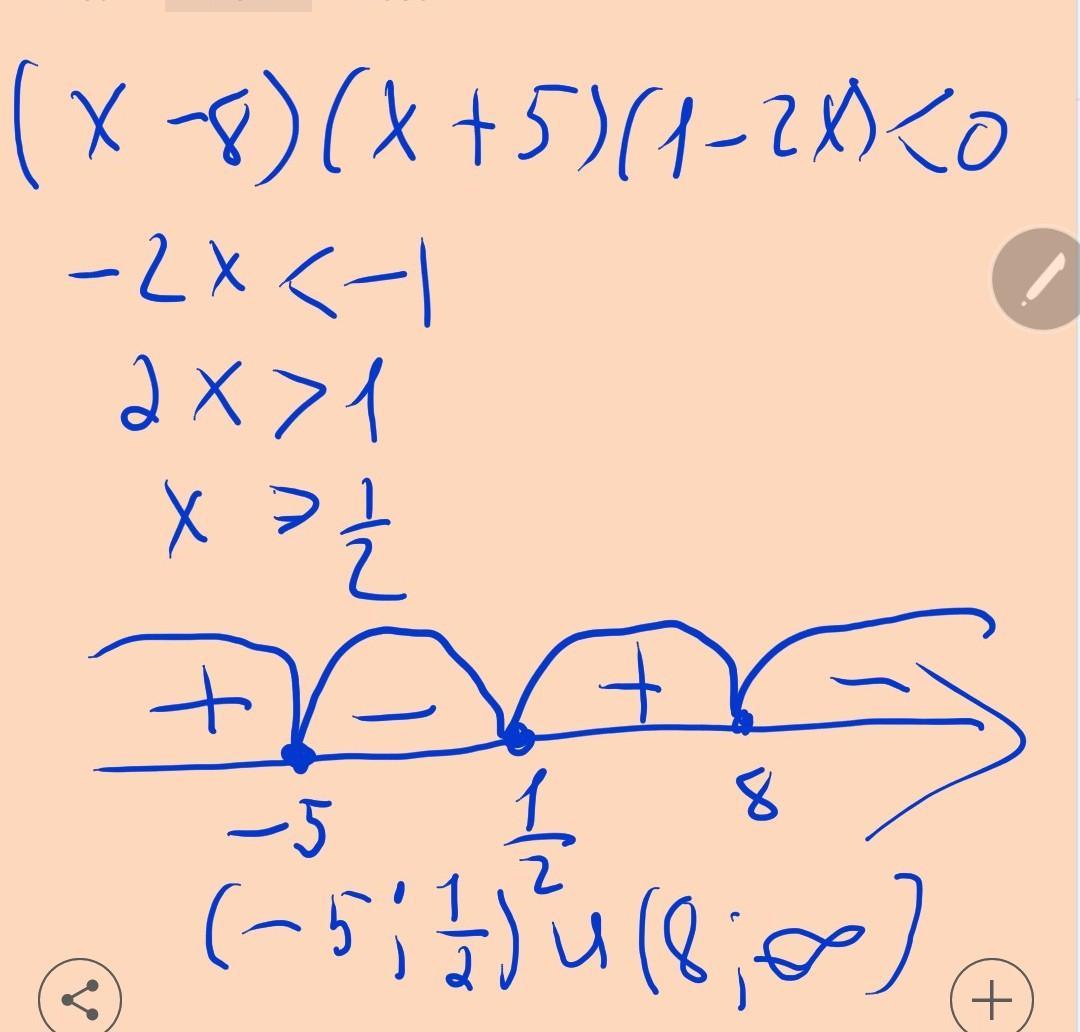 (x-8)(x+5)(1-2x)<0
-2x<-1
2x>1
x>1/2
+ - + -
-5 1/2 8
(-5; 1/2) u (8; ∞)